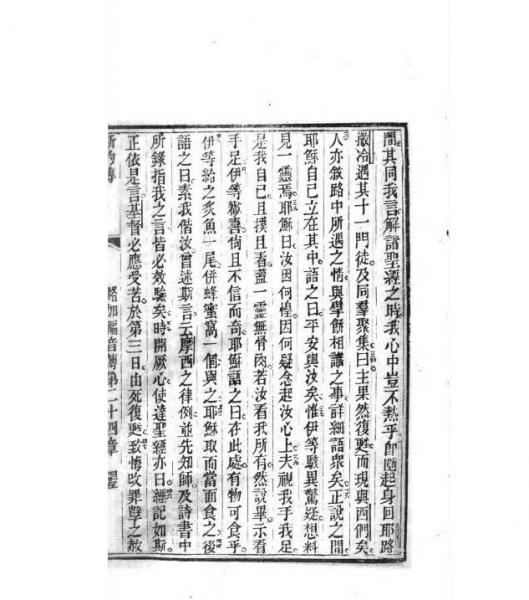 間其同我言解諸聖經之時我心中豈不熱乎卽隨起身回耶路
撒冷遇其十一門徒及同羣聚集曰主果然復甦而現與西們矣
人亦敘路中所遇之情與擘餅相識之事詳細語衆矣正說之間
耶穌自己立在其中語之曰平安與汝矣惟伊等駭異驚疑想料
見一靈焉耶穌曰汝因何惶因何疑念起汝心上夫視我手我足
是我自己且摸且看蓋一靈無骨肉若汝看我所有然說畢示看
手足伊等歡喜倘且不信而奇耶穌語之曰在此處有物可食乎
伊等給之炙魚一尾併蜂蜜窩一個與之耶穌取而當面食之後
語之曰素我偕汝曾述斯言云摩西之律例並先知師及詩書中
所錄指我之言皆必效驗矣時開厥心使達聖經亦曰經記如斯
正依是言基督必應受苦於第三日由死復甦致悔改罪孽之赦
路加福音傳第二十四章